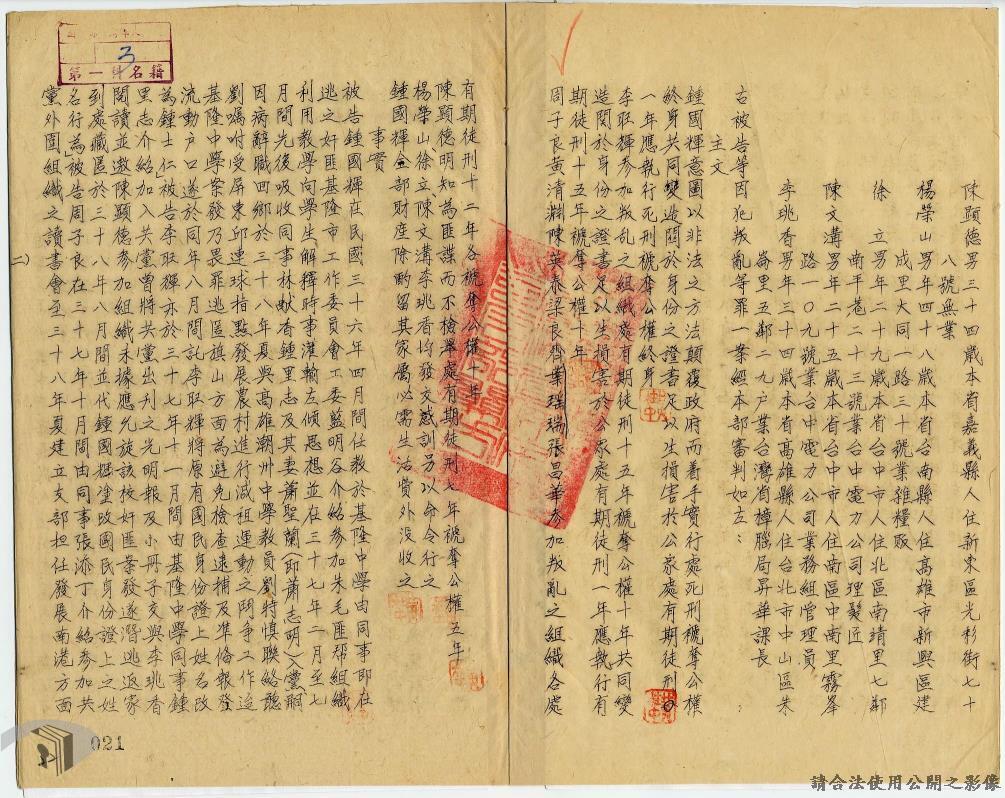 陳顯德男三十四歲本省嘉義縣人住新東區光彩街七十
八號無業
楊榮山男年四十八歲本省台南縣人住高雄市新興區建
成里大同一路三十號業雜糧販
徐立男年二十九歲本省台中市人住北區南靖里七鄰
南平巷二十三號業台中電力公司理髮匠
陳文溝男年二十五歲本省台中市人住南區中南里霧峯
路一〇九號業台中電力公司業務組管理員
李珧香男年三十四歲本省高雄縣人住台北市中山區朱
崙里五鄰二九戶業台灣省樟腦局昇華課長
右被告等因犯叛亂等罪一案經本部審判如左：
主文
鍾國輝意圖以非法之方法顛覆政府而着手實行處死刑褫奪公權
終身共同變造關於身份之證書足以生損害於公眾處有期徒刑
一年應執行死刑褫奪公權終身
李取輝參加叛乱之組織處有期徒刑十五年褫奪公權十年共同變
造関於身份之證書足以生損害於公眾處有期徒刑一年應執行有
期徒刑十五年褫奪公權十年
周子良黃清淵陳英泰梁良齊葉瑞瑞張昌華參加叛亂之組織各處
有期徒刑十二年各褫奪公權十年
陳顯德明知為匪諜而不檢舉處有期徒刑七年褫奪公權五年
楊榮山徐立陳文溝李珧香均發交感訓另以命令行之
鍾國輝全部財產除酌留其家屬必需生活費外沒收之
事實
被告鍾國輝在民國三十六年四月間任教於基隆中學由同事即在
逃之奸匪基隆市工作委員會工委藍明谷介紹參加朱毛匪帮組織
利用教學向學生解釋時事灌輸左傾思想並在三十七年二月至七
月間先後吸收同事林献香鍾里志及其妻蕭聖蘭(即蕭志明)入黨嗣
因病辭職回鄉於三十八年夏與高雄潮州中學教員劉特慎聯絡聽
劉囑咐受屏東邱連球指點發展農村進行減租運動之鬥爭工作迨
基隆中學案發乃畏罪逃匿旗山方面為避免檢查逮捕及準俻報登
流動戶口遂於同年八月間託李取輝將原有國民身份證上姓名改
為鍾士仁被告李取輝亦於三十七年十一月間由基隆中學同事鍾
里志介紹加入共黨曾將共黨出刊之光明報及小冊子交與李珧香
閱讀並邀陳顯德參加組織未據應允旋該校奸匪案發逐潛逃返家
到處藏匿於三十八年八月間並代鍾國輝塗改國民身份證上之姓
名行為被告周子良在三十七年十月間由同事張添丁介紹參加共
黨外圍組織之讀書會至三十八年夏建立支部担任發展南港方面
二)
第一科名籍
3
021
請合法使用公開之影像